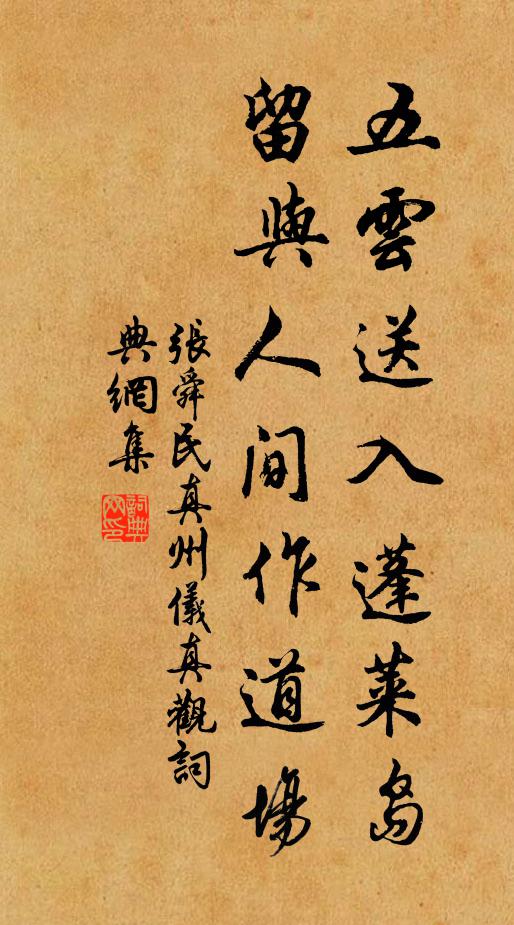 五雲送入蓬萊島
留與人間作道場
張舜民真州儀真觀詞
典網集
詞典網印